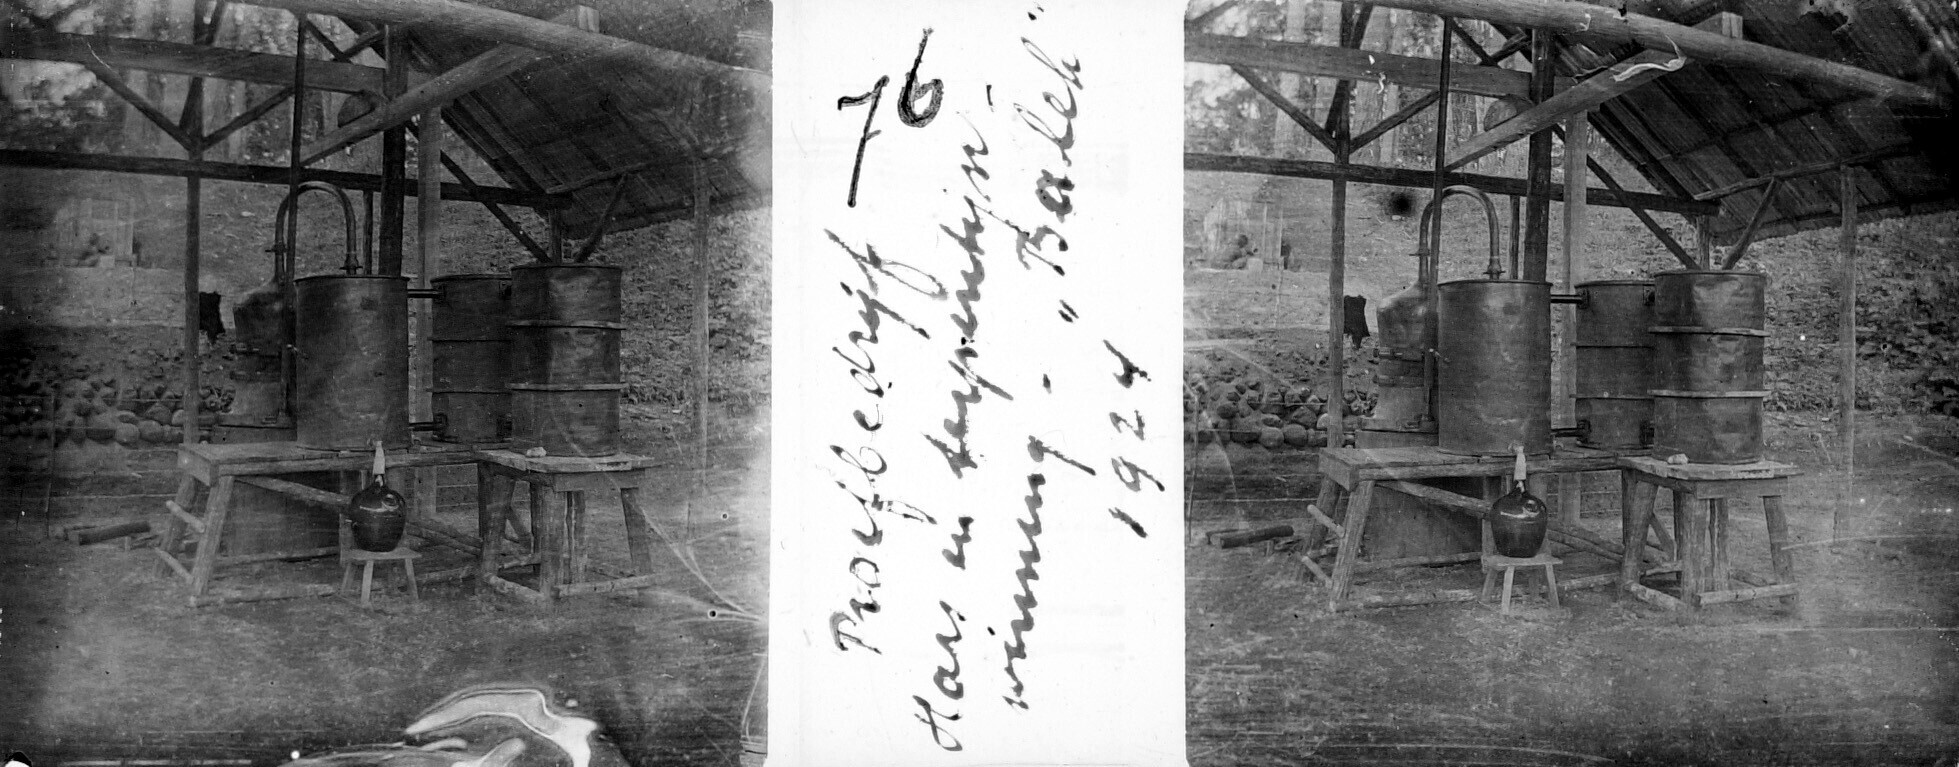 76
Proefbedrijf
Hars en terpentijn-
winning - "Baleh"
1924